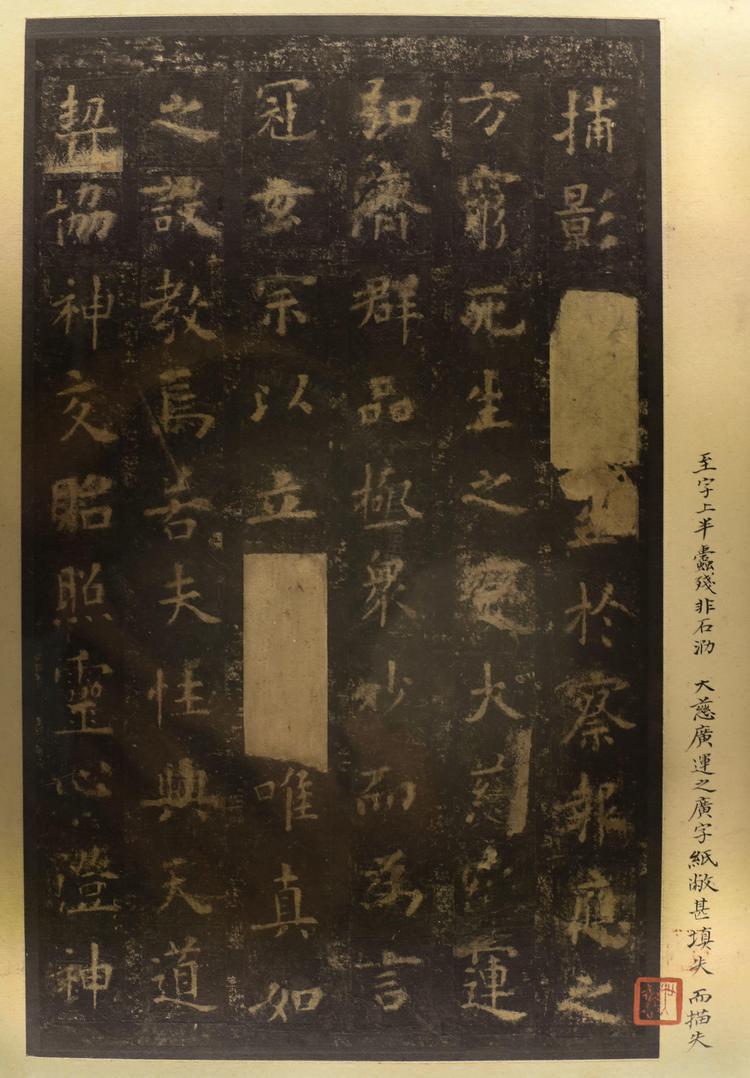 捕影至於察報應之
方窮死生之大慈廣運
弘濟群品極衆妙而為言
冠玄宗以立唯真如
之設教焉若夫性與天道
契協神交貽照靈心澄神
至字上半蠹殘非石泐 大慈廣運之廣字紙敝甚填失而描失